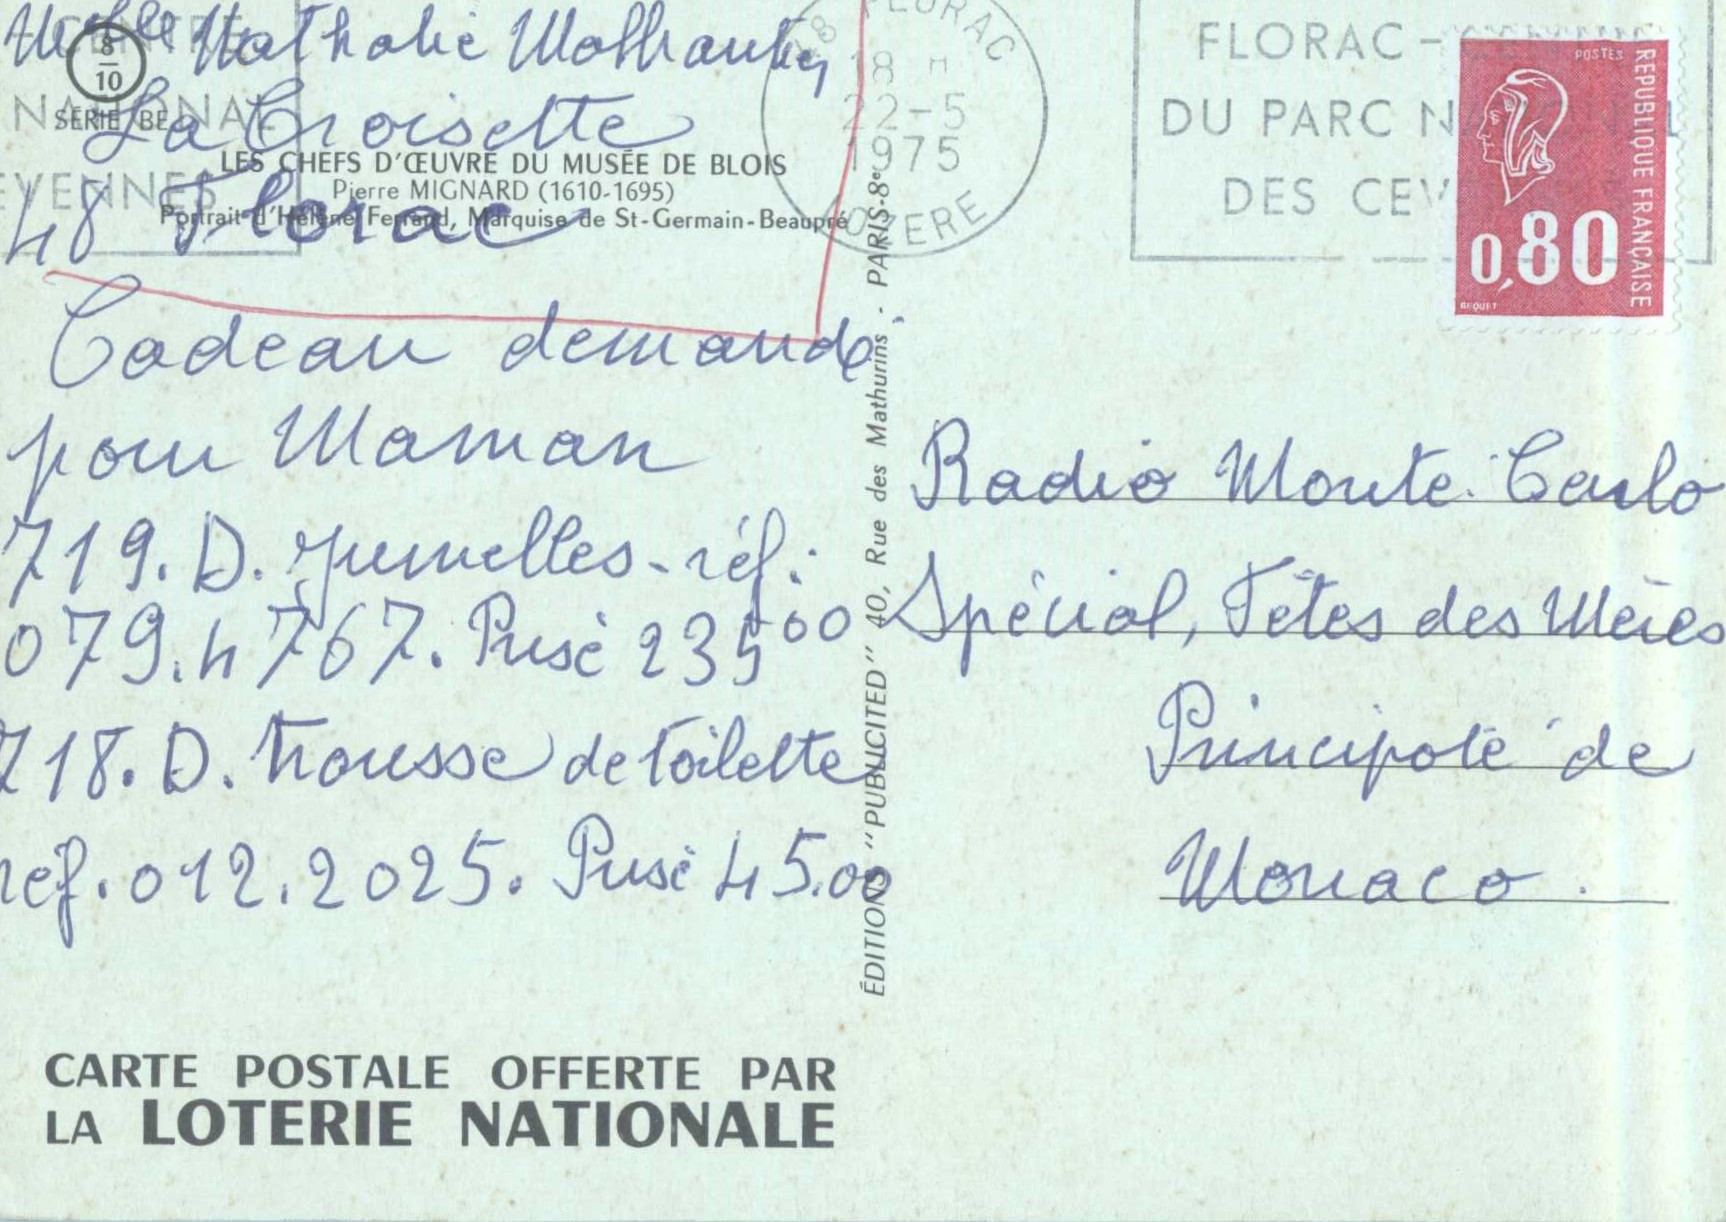 Melle Nathalie
La Croisette
48 Florac
8/10
SÉRIE BE
LES CHEFS D'ŒUVRE DU MUSÉE DE BLOIS
Pierre MIGNARD (1610-1695)
Portrait d'Hélène Ferrand, Marquise de St-Germain-Beaupré
CENTRE
NATIONAL
CEVENNES
Cadeau demandé
pour Maman
719. D. Jumelles - réf:
079.4767. Prisé 235 00
718. D. Trousse de toilette
réf. 012.2025. Prisé 45.00
CARTE POSTALE OFFERTE PAR
LA LOTERIE NATIONALE
ÉDITIONS "PUBLICITED" 40, Rue des Mathurins - PARIS-8e
48 FLORAC
18 H
22-5
1975
LOZERE
FLORAC-
DU PARC NATIONAL
DES CEV
POSTES
REPUBLIQUE FRANÇAISE
0,80
BEQUET
Radio Monte-Carlo
Spécial, Fêtes des Mères
Principoté de
Monaco.